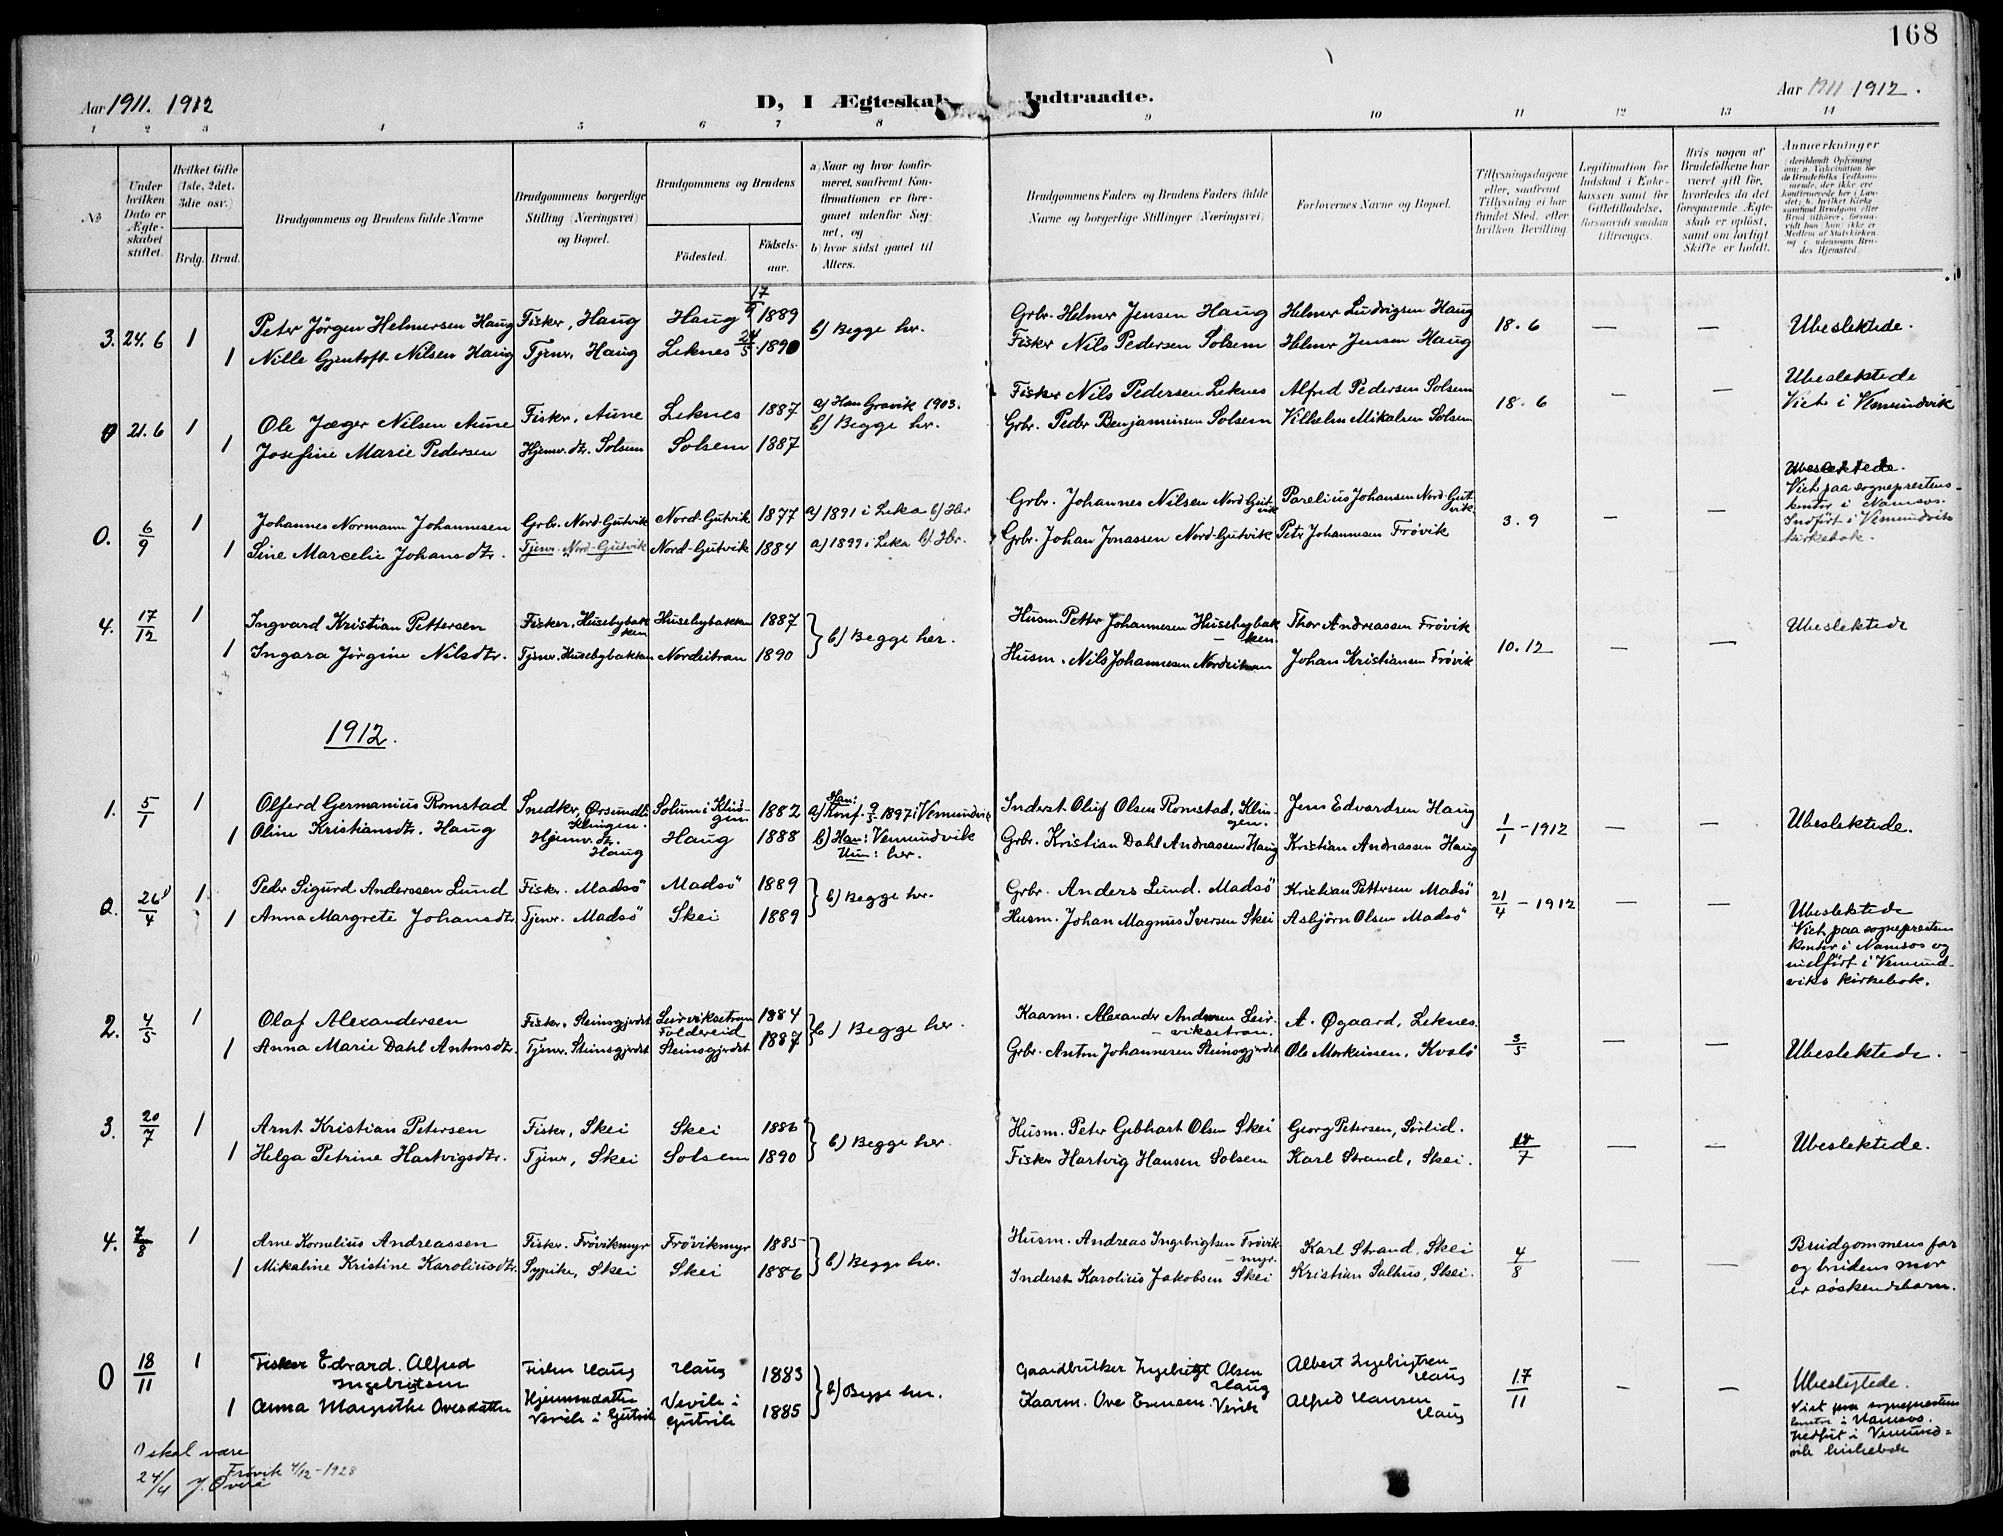 168
Aar 1911. 1912
D, I Ægteskab Indtraadte.
Aar 1911 1912.
1 2 3 4 5 6 7 8 9 10 11 12 13 14
No
Under hvilken Dato er Ægteskabet stiftet.
Hvilket Gifte (1ste, 2det, 3die osv.)
Brdg. Brud.
Brudgommens og Brudens fulde Navne
Brudgommens borgerlige Stilling (Næringsvei) og Bopæl.
Brudgommens og Brudens
Födested.
Födselsaar.
a) Naar og hvor konfirmeret, saafremt Konfirmationen er foregaaet udenfor Sognet, og
b) hvor sidst gaaet til Alters.
Brudgommens Faders og Brudens Faders fulde Navne og borgerlige Stillinger (Næringsvei)
Forlovernes Navne og Bopæl.
Tillysningsdagene eller, saafremt Tillysning ei har fundet Sted, efter hvilken Bevilling
Legitimation for Indskud i Enkekassen samt for Giftetilladelse, forsaavidt saadan tiltrænges.
Hvis nogen af Brudefolkene har været gift før, hvorledes da det foregaaende Ægteskab er oplöst, samt om lovligt Skifte er holdt.
Anmerkninger
3. 24. 6 1 Peter Jörgen Helmersen Haug Fisker, Haug Haug 17/9 1889 b) Begge her. Grbr. Helmer Jensen Haug Helmer Ludvigsen Haug 18. 6 — — Ubeslektede.
1 Nille Gjentoft Nilsen Haug Tjener, Haug Leknes 24/5 1890 Fisker Nils Pedersen Solsem Helmer Jensen Haug
0 21. 6 1 Ole Jæger Nilsen Aune Fisker, Aune Leknes 1887 a) Han Gravik 1903. b) Begge her. Fisker Nils Pedersen Leknes Alfred Pedersen Solsem 18. 6 — — Ubeslektede
1 Josefine Marie Pedersen Hjemv. dtr. Solsem Solsem 1887 Grbr. Peder Benjaminsen Solsem Vilhelm Mikalsen Solsem Viet i Vemundvik
0. 6/9 1 Johannes Normann Johannesen Grbr. Nord-Gutvik Nord-Gutvik 1877 a) 1891 i Leka b) Her Grbr. Johannes Nilsen Nord-Gutvik Parelius Johansen Nord-Gutvik 3. 9 — — Ubeslektede.
1 Sine Marcelie Johansdtr. Tjener. Nord-Gutvik Nord-Gutvik 1884 a) 1899 i Leka b) Her. Grbr. Johan Jonassen Nord-Gutvik Peter Johannesen Frövik
Viet paa sogneprestens kontor i Namsos. Indført i Vemundviks kirkebok.
4. 17/12 1 Ingvard Kristian Pettersen Fisker, Husebybakken Husebybakken 1887 b) Begge her. Husm. Petter Johannesen Husebybakken Thor Andreassen Frövik 10. 12 — — Ubeslektede
1 Ingara Jörgine Nilsdtr. Tjener. Husebybakken Nordeitran 1890 Husm. Nils Johannesen Nordeitran Johan Kristiansen Frövik
1912.
1. 5/1 1 Olferd Germanius Romstad Snedker, Klingen. Solum i Klingen 1882 a) Han: Konf. 1897 i Vemundvik Inderst Oluf Olsen Romstad, Klingen. Jens Edvardsen Haug 1/1 - 1912 — — Ubeslektede.
1 Oline Kristiansdtr. Haug Hjemv. dtr. Haug Haug 1888 b) Han: Vemundvik Hun: her. Grbr. Kristian Dahl Andreassen Haug Kristian Andreassen Haug
0. 26 1)/4 1 Peder Sigurd Anderssen Lund Fisker. Madsö Madsö 1889 b) Begge her. Grbr. Anders Lund. Madsö Kristian Pettersen Madsö 21/4 - 1912 — — Ubeslektede
1 Anna Margrete Johansdtr. Tjener. Madsö Skei 1889 Husm. Johan Magnus Iversen Skei Asbjörn Olsen Madsö
Viet paa sogneprestens kontor i Namsos og indført i Vemundviks kirkebok.
2. 4/5 1 Olaf Alexandersen Fisker, Steinsgjerdet Leirviksetran Foldereid 1884 b) Begge her. Kaarm. Alexander Andersen Leirviksetran. A. Øgaard, Leknes. 3/5 — — Ubeslektede.
1 Anna Marie Dahl Antonsdtr. Tjener. Steinsgjerdet Steinsgjerdet 1887 Grbr. Anton Johannesen Steinsgjerdet Ole Merkeinsen, Kvalö
3. 20/7 1 Arnt Kristian Petersen Fisker, Skei Skei 1886 b) Begge her. Husm. Peter Gebhart Olsen Skei Georg Petersen, Sørlid. 14/7 — — Ubeslektede.
1 Helga Petrine Hartvigsdtr. Tjener, Skei Solsem 1890 Fisker Hartvig Hansen Solsem Karl Strand, Skei.
4. 7/8 1 Arne Kornelius Andreassen Fisker. Frövikmyr Frövikmyr 1885 b) Begge her. Husm. Andreas Ingebrigtsen Frövikmyr. Karl Strand, Skei 4/8 — — Brudgommens far
1 Mikaline Kristine Karoliusdtr. Sypike, Skei Skei 1886 Inderst Karolius Jakobsen Skei Kristian Salhus, Skei. og brudens mor er søskendebarn.
0 18/11 1 Fisker Edvard Alfred Ingebrigtsen Fisker Haug Haug 1883 b) Begge her. Gaardbruker Ingebrigt Olsen Haug Albert Ingebrigtsen Haug 17/11 — — Ubeslegtede.
1 Anna Margrethe Ovesdatter Hjemmedatter Vevik i Gutvik Vevik i Gutvik 1885 Kaarm. Ove Ennesen Vevik Alfred Hansen Haug
Viet paa sogneprestens kontor i Namsos. Indført i Vemundvik kirkebok
1) skal være 24/4 Frövik 4/12-1928